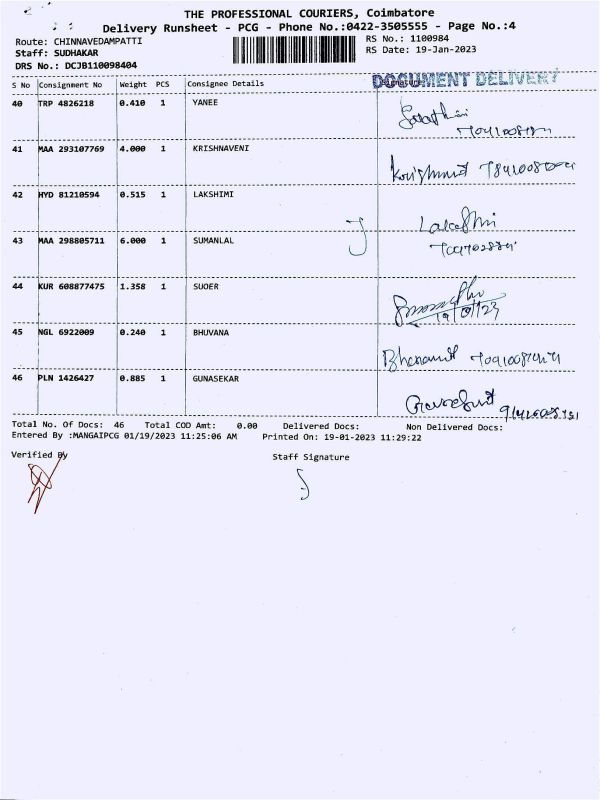 THE PROFESSIONAL COURIERS, Coimbatore
Delivery Runsheet - PCG - Phone No.:0422-3505555 - Page No.:4
Route: CHINNAVEDAMPATTI
RS No.: 1100984
Staff: SUDHAKAR
RS Date: 19-Jan-2023
DRS No.: DCJB110098404
S No Consignment No Weight PCS Consignee Details Signature
DOCUMENT DELIVERY
40 TRP 4826218 0.410 1 YANEE
41 MAA 293107769 4.000 1 KRISHNAVENI
42 HYD 81210594 0.515 1 LAKSHIMI
43 MAA 298805711 6.000 1 SUMANLAL
44 KUR 608877475 1.358 1 SUOER
19/01/23
45 NGL 6922009 0.240 1 BHUVANA
46 PLN 1426427 0.885 1 GUNASEKAR
Total No. Of Docs: 46 Total COD Amt: 0.00 Delivered Docs: Non Delivered Docs:
Entered By :MANGAIPCG 01/19/2023 11:25:06 AM Printed On: 19-01-2023 11:29:22
Verified By Staff Signature